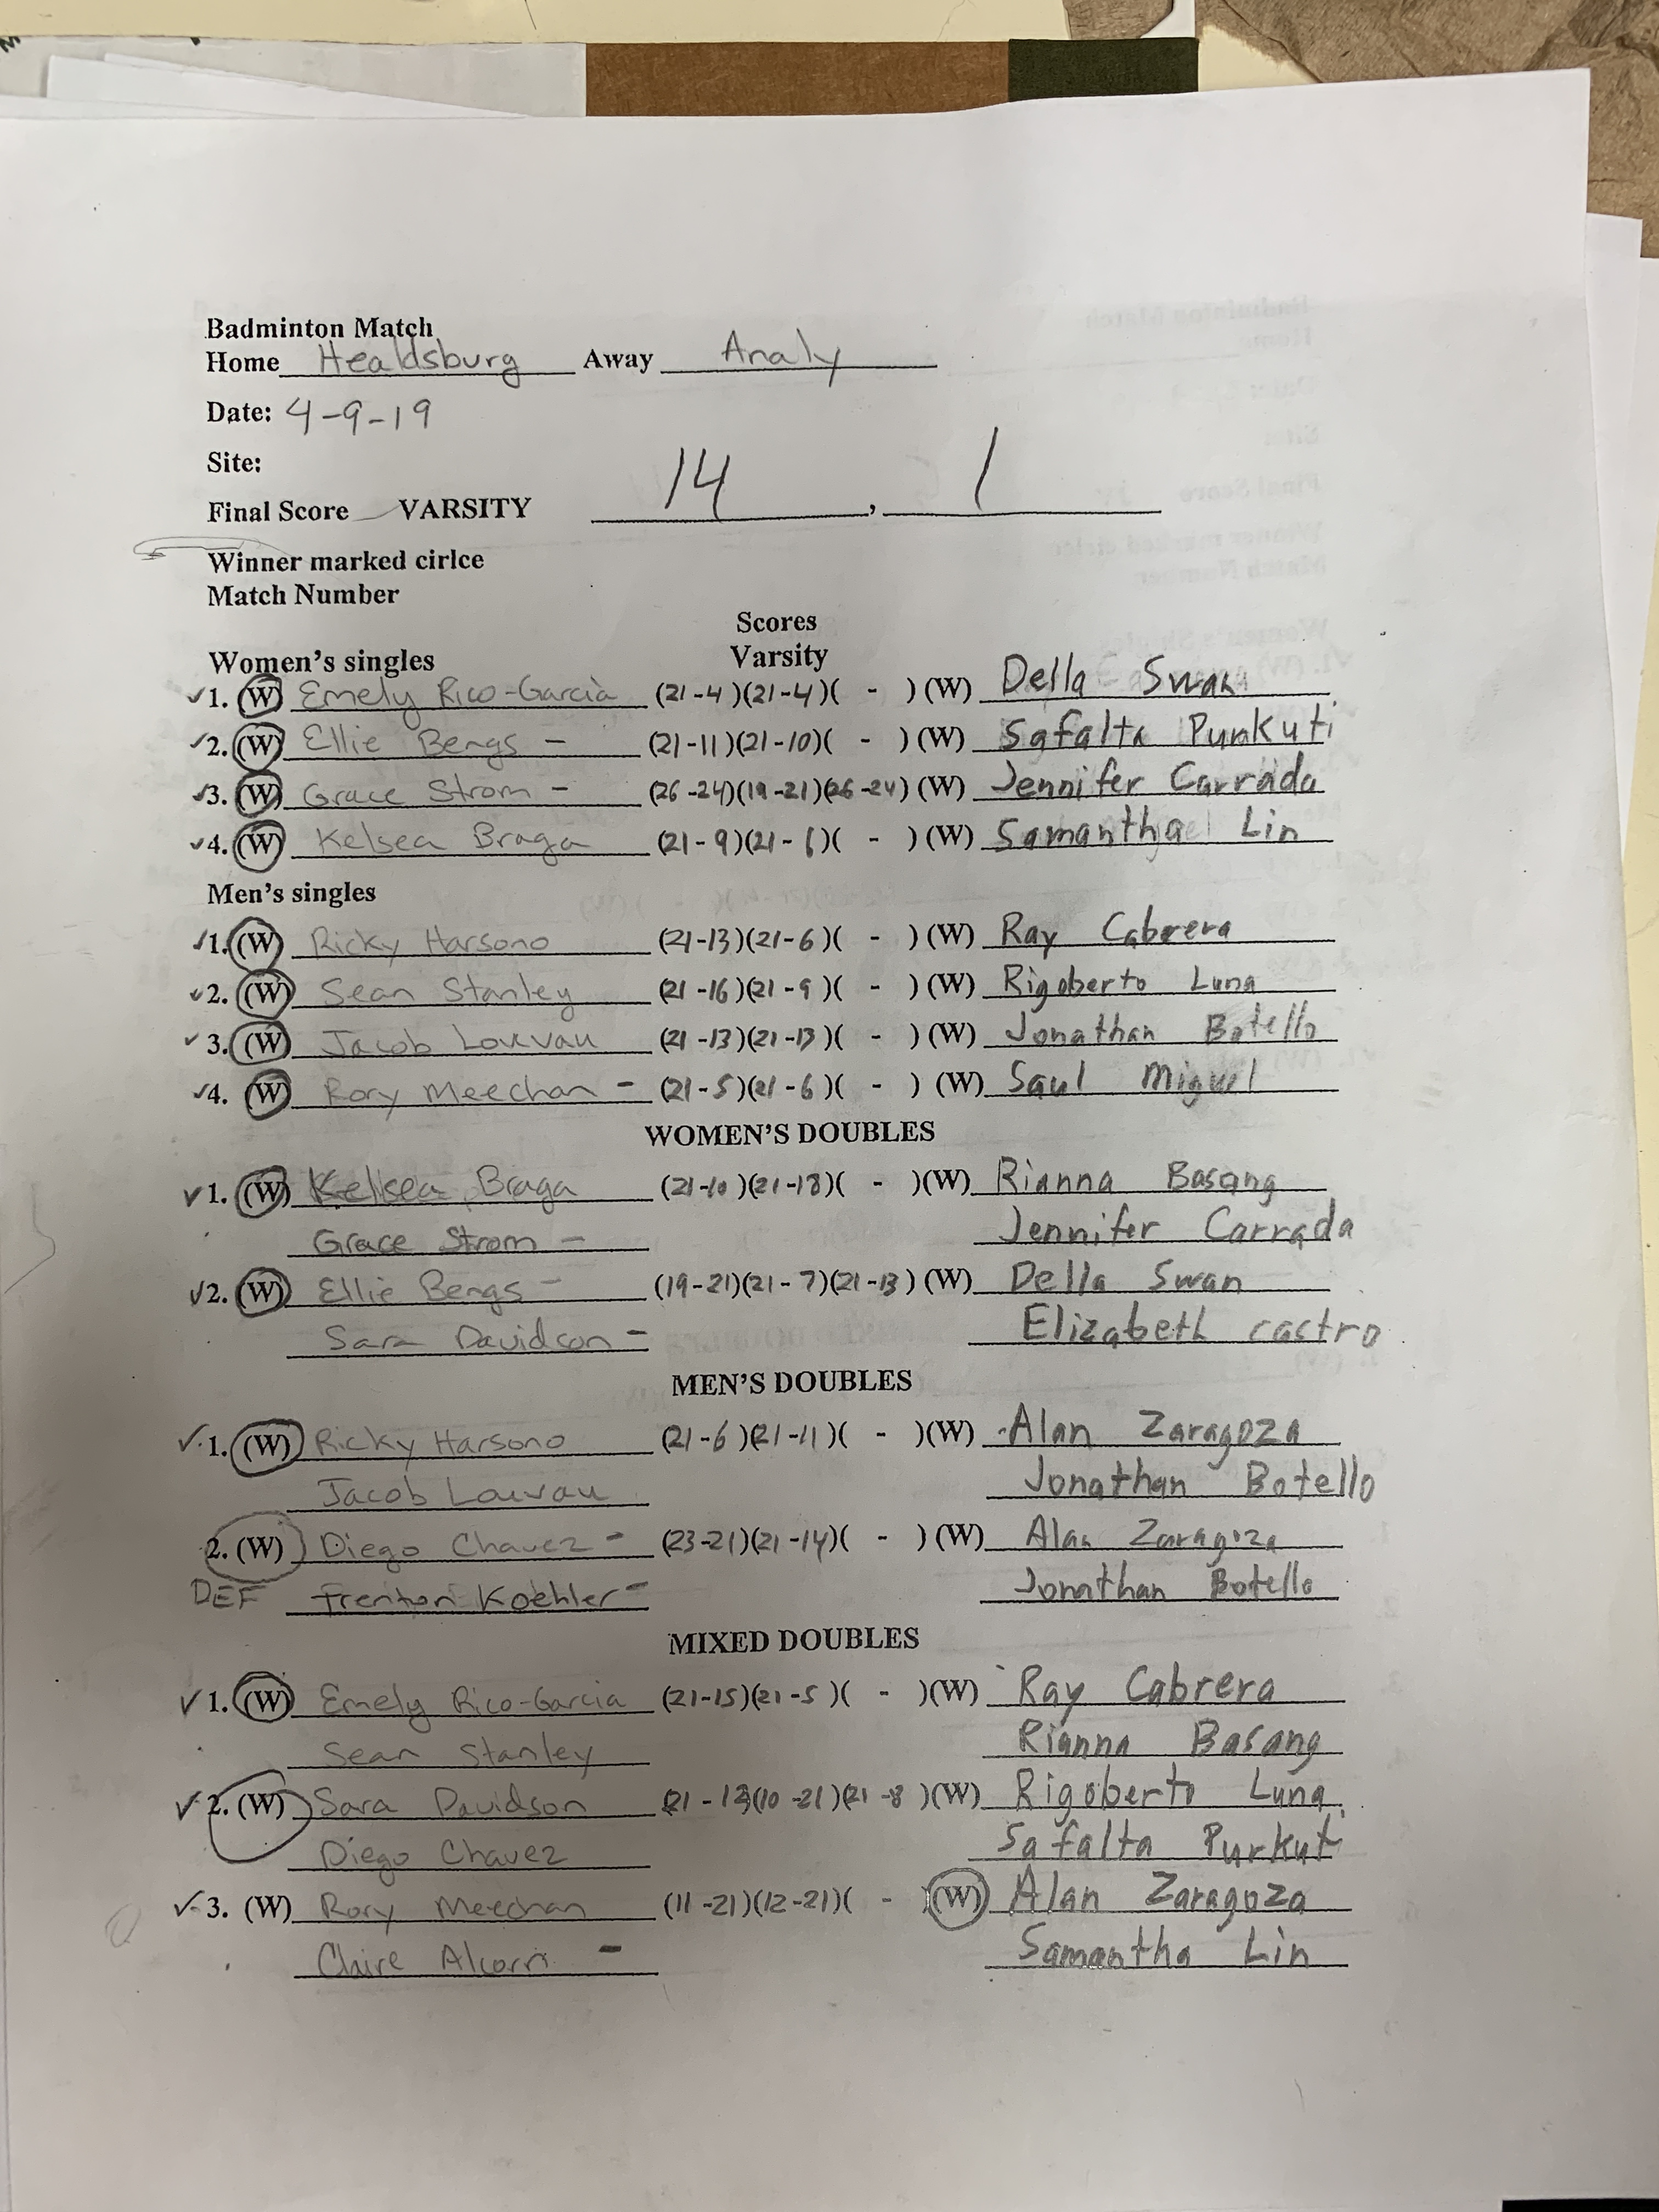 Badminton Match
Home Healdsburg Away Analy
Date: 4-9-19
Site:
Final Score VARSITY 14 , 1
Winner marked cirlce
Match Number
Scores
Women's singles Varsity
✓1. (W) Emely Rico-Garcia (21-4)(21-4)( - ) (W) Della Swan
✓2. (W) Ellie Bengs - (21-11)(21-10)( - ) (W) Safalta Punkuti
✓3. (W) Grace Strom - (26-24)(19-21)(26-24) (W) Jennifer Carrada
✓4. (W) Kelsea Braga (21-9)(21-6)( - ) (W) Samantha Lin
Men's singles
✓1. (W) Ricky Harsono (21-13)(21-6)( - ) (W) Ray Cabrera
✓2. (W) Sean Stanley (21-16)(21-9)( - ) (W) Rigoberto Luna
✓3. (W) Jacob Louvau (21-13)(21-13)( - ) (W) Jonathan Botello
✓4. (W) Rory Meechan - (21-5)(21-6)( - ) (W) Saul Miguel
WOMEN'S DOUBLES
✓1. (W) Kelsea Braga (21-10)(21-18)( - )(W) Rianna Basang
Grace Strom - Jennifer Carrada
✓2. (W) Ellie Bengs - (19-21)(21-7)(21-13) (W) Della Swan
Sara Davidson - Elizabeth castro
MEN'S DOUBLES
✓1. (W) Ricky Harsono (21-6)(21-11)( - )(W) Alan Zaragoza
Jacob Louvau Jonathan Botello
2. (W) Diego Chavez - (23-21)(21-14)( - ) (W) Alan Zaragoza
DEF Trenton Koehler - Jonathan Botello
MIXED DOUBLES
✓1. (W) Emely Rico-Garcia (21-15)(21-5)( - )(W) Ray Cabrera
Sean Stanley Rianna Basang
✓2. (W) Sara Davidson (21-13)(10-21)(21-8)(W) Rigoberto Luna
Diego Chavez Safalta Purkuti
✓3. (W) Rory Meechan (11-21)(12-21)( - )(W) Alan Zaragoza
Claire Alcorn - Samantha Lin